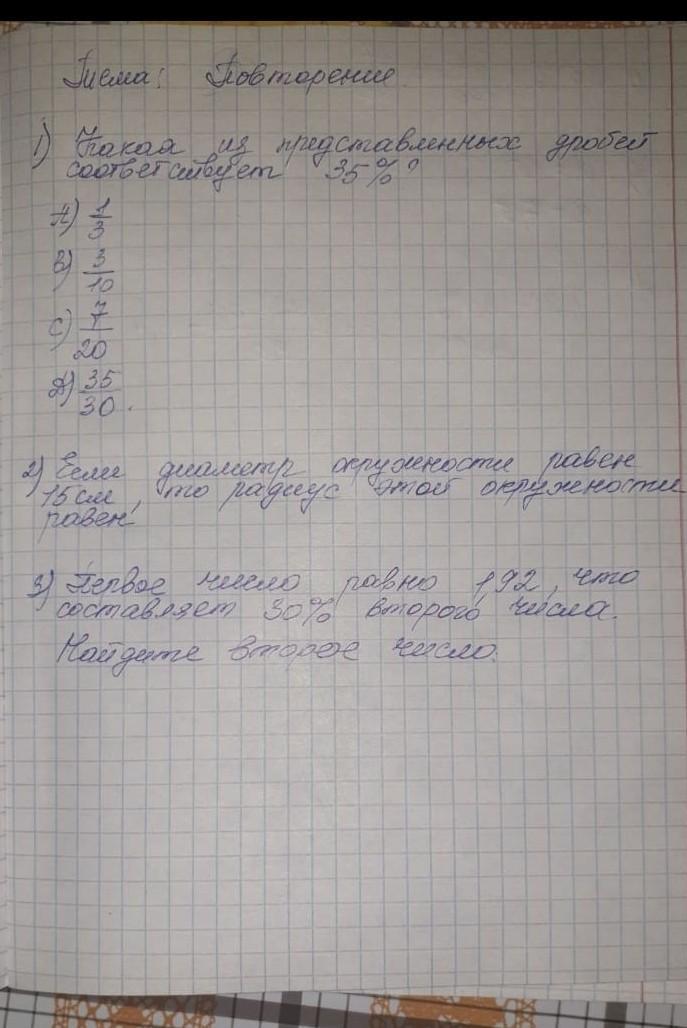 Тема: Повторение
1) Какая из представленных дробей
соответствует 35%?
А) 1/3
В) 3/10
С) 7/20
Д) 35/30.
2) Если диаметр окружности равен
15 см, то радиус этой окружности
равен
3) Первое число равно 1,92, что
составляет 30% второго числа.
Найдите второе число.